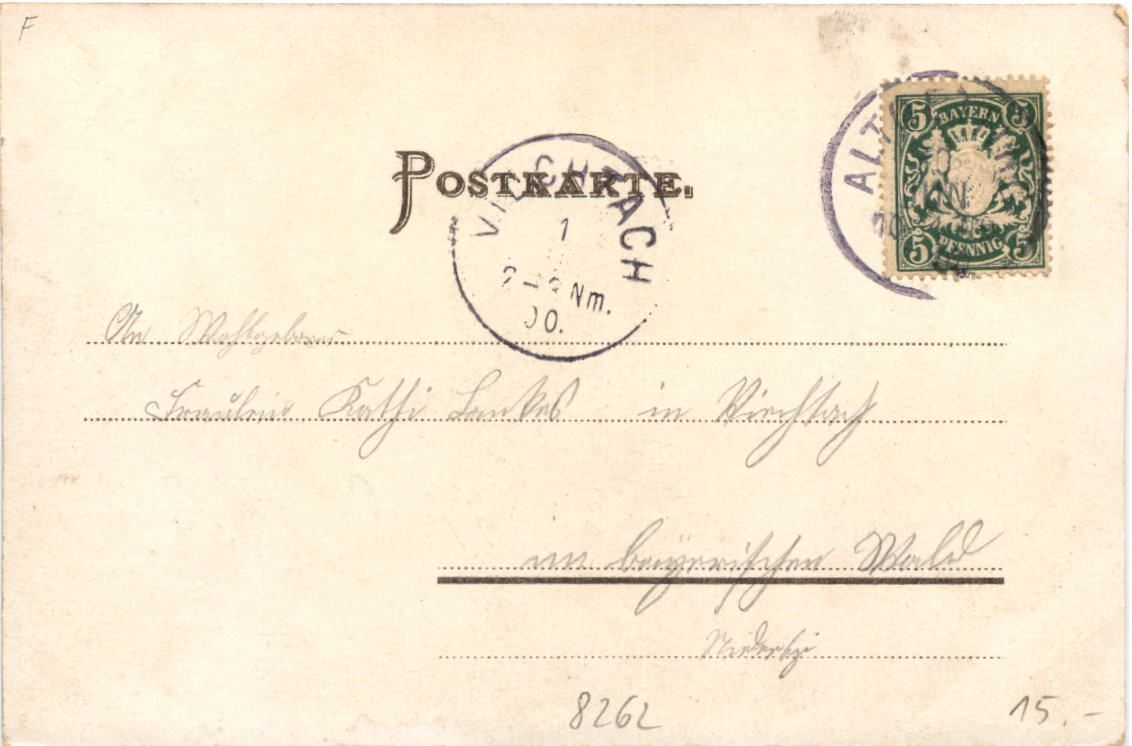 F
POSTKARTE.
VIECHTACH
1
2-3Nm.
00.
ALT
5 BAYERN 5
5 PFENNIG 5
An Wohlgeboren
Fräulein Kathi Lankes in Viechtach
im bayerischen Wald
8262
15.-